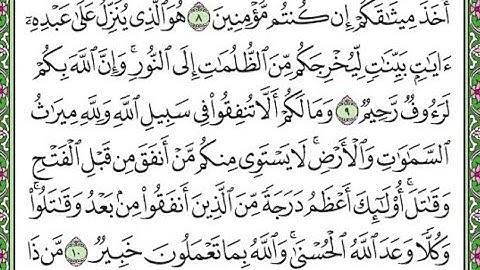 أَخَذَ مِيثَٰقَكُمْ إِن كُنتُم مُّؤْمِنِينَ ٨ هُوَ ٱلَّذِى يُنَزِّلُ عَلَىٰ عَبْدِهِۦٓ
ءَايَٰتٍۭ بَيِّنَٰتٍ لِّيُخْرِجَكُم مِّنَ ٱلظُّلُمَٰتِ إِلَى ٱلنُّورِ ۚ وَإِنَّ ٱللَّهَ بِكُمْ
لَرَءُوفٌ رَّحِيمٌ ٩ وَمَا لَكُمْ أَلَّا تُنفِقُوا۟ فِى سَبِيلِ ٱللَّهِ وَلِلَّهِ مِيرَٰثُ
ٱلسَّمَٰوَٰتِ وَٱلْأَرْضِ ۚ لَا يَسْتَوِى مِنكُم مَّنْ أَنفَقَ مِن قَبْلِ ٱلْفَتْحِ
وَقَٰتَلَ ۚ أُو۟لَٰٓئِكَ أَعْظَمُ دَرَجَةً مِّنَ ٱلَّذِينَ أَنفَقُوا۟ مِنۢ بَعْدُ وَقَٰتَلُوا۟ ۚ
وَكُلًّا وَعَدَ ٱللَّهُ ٱلْحُسْنَىٰ ۚ وَٱللَّهُ بِمَا تَعْمَلُونَ خَبِيرٌ ١٠ مَّن ذَا